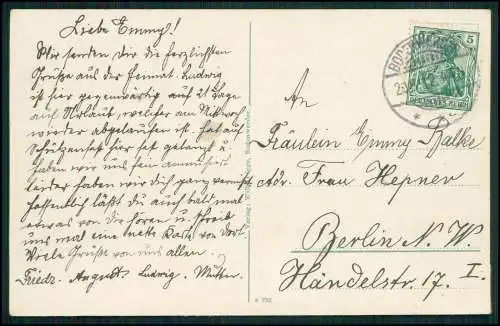 Liebe Emmy!
Wir senden Dir die herzlichsten
Grüße aus der Heimat. Ludwig
ist hier gegenwärtig auf 21 Tage
auf Urlaub, welcher am Mittwoch
wieder abgelaufen ist. hat auf
Schützenfest hier gefehlt u.
haben wir uns fein amüsiert
leider haben wir Dich ganz vermißt
Hoffentlich läßt du auch bald mal
etwas von dir hören u. schreib
uns mal eine nette Karte von dort.
Viele Grüße von uns allen.
Friedr. August. Ludwig. Mutter.
An
Fräulein Emmy Kalke
Adr. Frau Hepner
Berlin N. W.
Händelstr. 17. I.
5